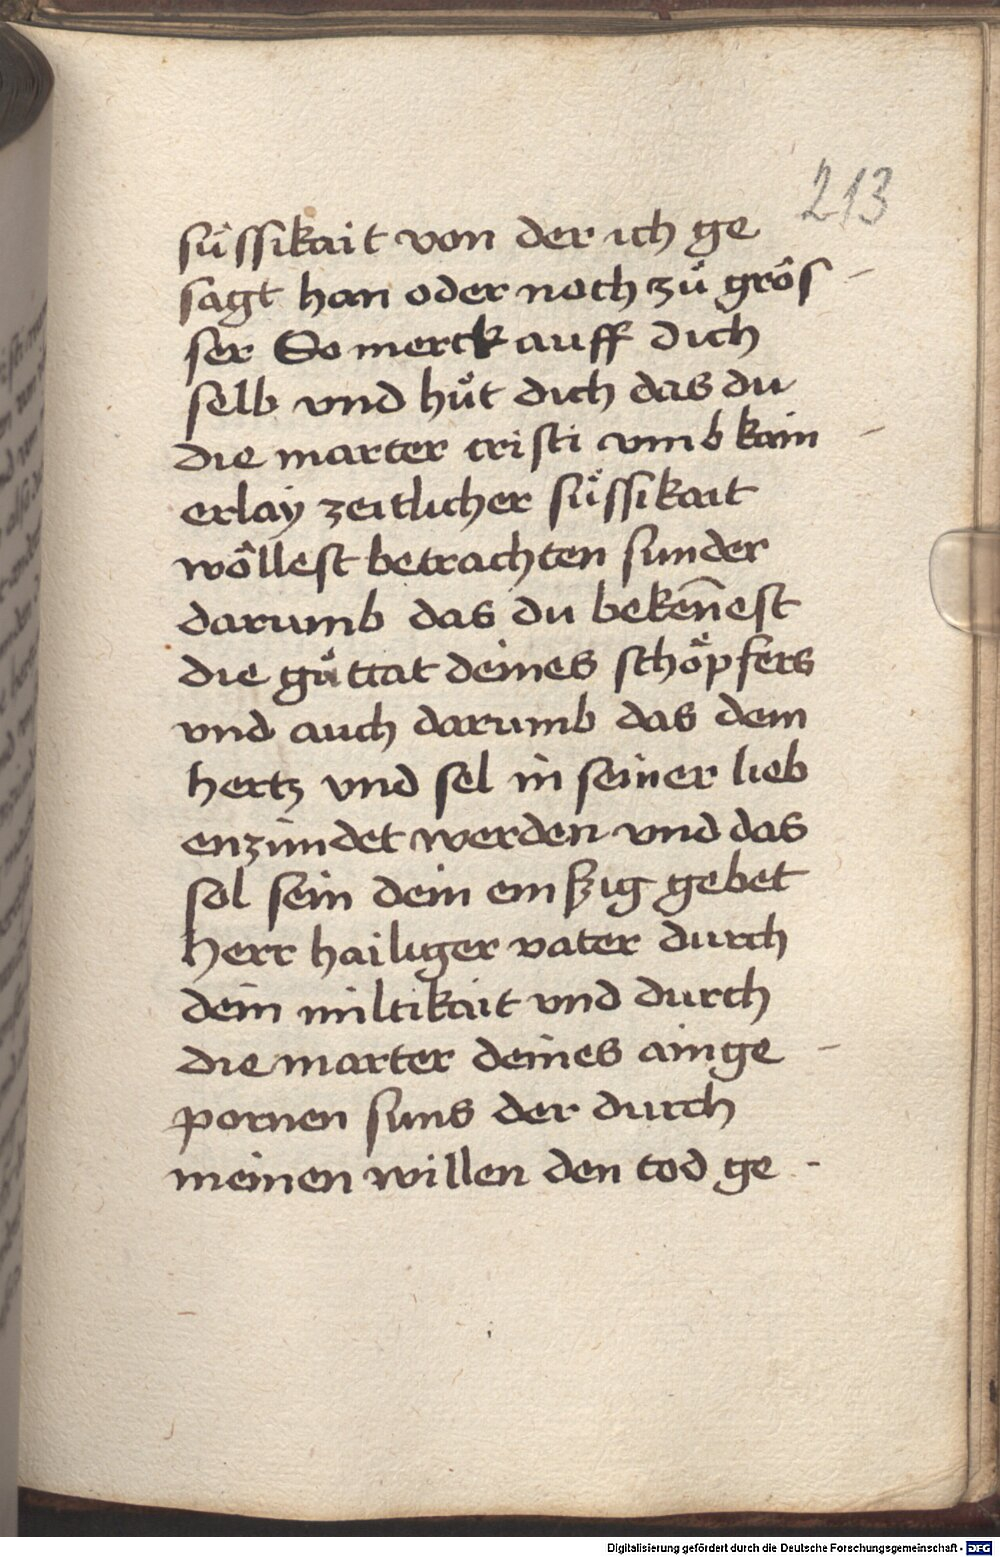 213
süssikait von der ich ge
sagt han oder noch zů grôs
ser So merck auff dich
selb vnd hůt dich das du
die marter cristi vmb kain
erlaÿ zeitlicher sůssikait
wôllest betrachten sunder
darumb das du bekeñest
die gůttat deines schöpfers
vnd auch darumb das dein
hertz vnd sel in seiner lieb
enzündet werden vnd das
sol sein dein emszig gebet
Herr hailiger vater durch
dein miltikait vnd durch
die marter deines ainge
pornen suns der durch
meinen willen den tod ge
Digitalisierung gefördert durch die Deutsche Forschungsgemeinschaft - DFG